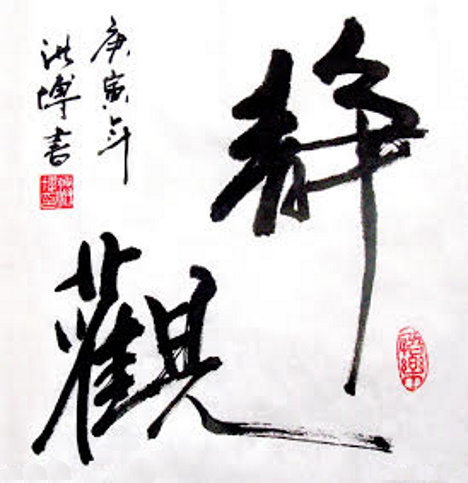 静
觀
庚寅年
洪博書